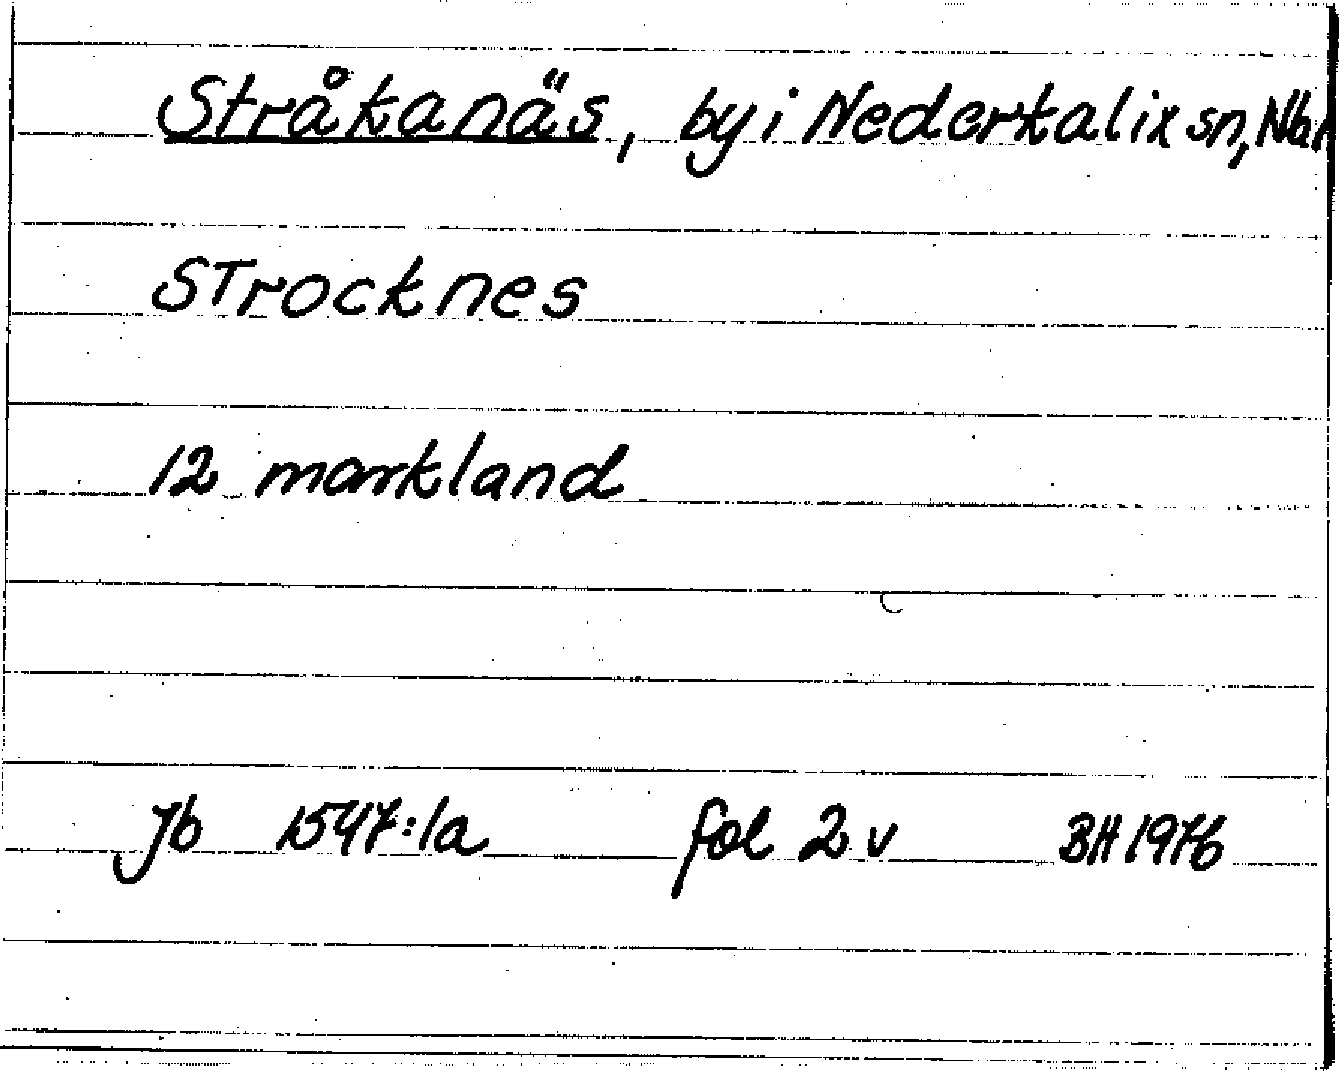 Stråkanäs, by i Nederkalix sn, Nbn
STrocknes
12 markland
Jb 1547:1a fol 2 v BH 1976